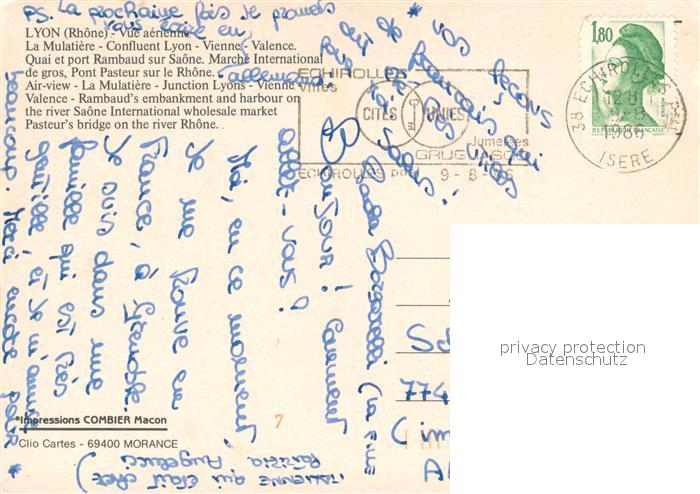 PS. La prochaine fois je promets
vous écrire en
allemand
LYON (Rhône) - Vue aérienne
La Mulatière - Confluent Lyon - Vienne - Valence.
Quai et port Rambaud sur Saône. Marché International
de gros, Pont Pasteur sur le Rhône.
Air-view - La Mulatière - Junction Lyons - Vienne
Valence - Rambaud's embankment and harbour on
the river Saône International wholesale market
Pasteur's bridge on the river Rhône.
ECHIROLLES
Villes
CITÉS UNIES
Jumelées
GRUGLIASCO
ECHIROLLES PPAL 9-8-86
1,80
REPUBLIQUE FRANÇAISE
POSTES
38 ECHIROLLES PPAL
1986
ISERE
Bonjour! Comment
allez-vous?
Moi, en ce moment
je me trouve en
France, à Grenoble.
Je suis dans une
famille qui est très
gentille, et je m'amuse
beaucoup. Merci encore pour *
* vos leçons
de français qui
vos
Giada (la fille
italienne qui était chez
Patrizia Angelucci)
774
*Impressions COMBIER Macon
7
Clio Cartes - 69400 MORANCE
privacy protection
Datenschutz